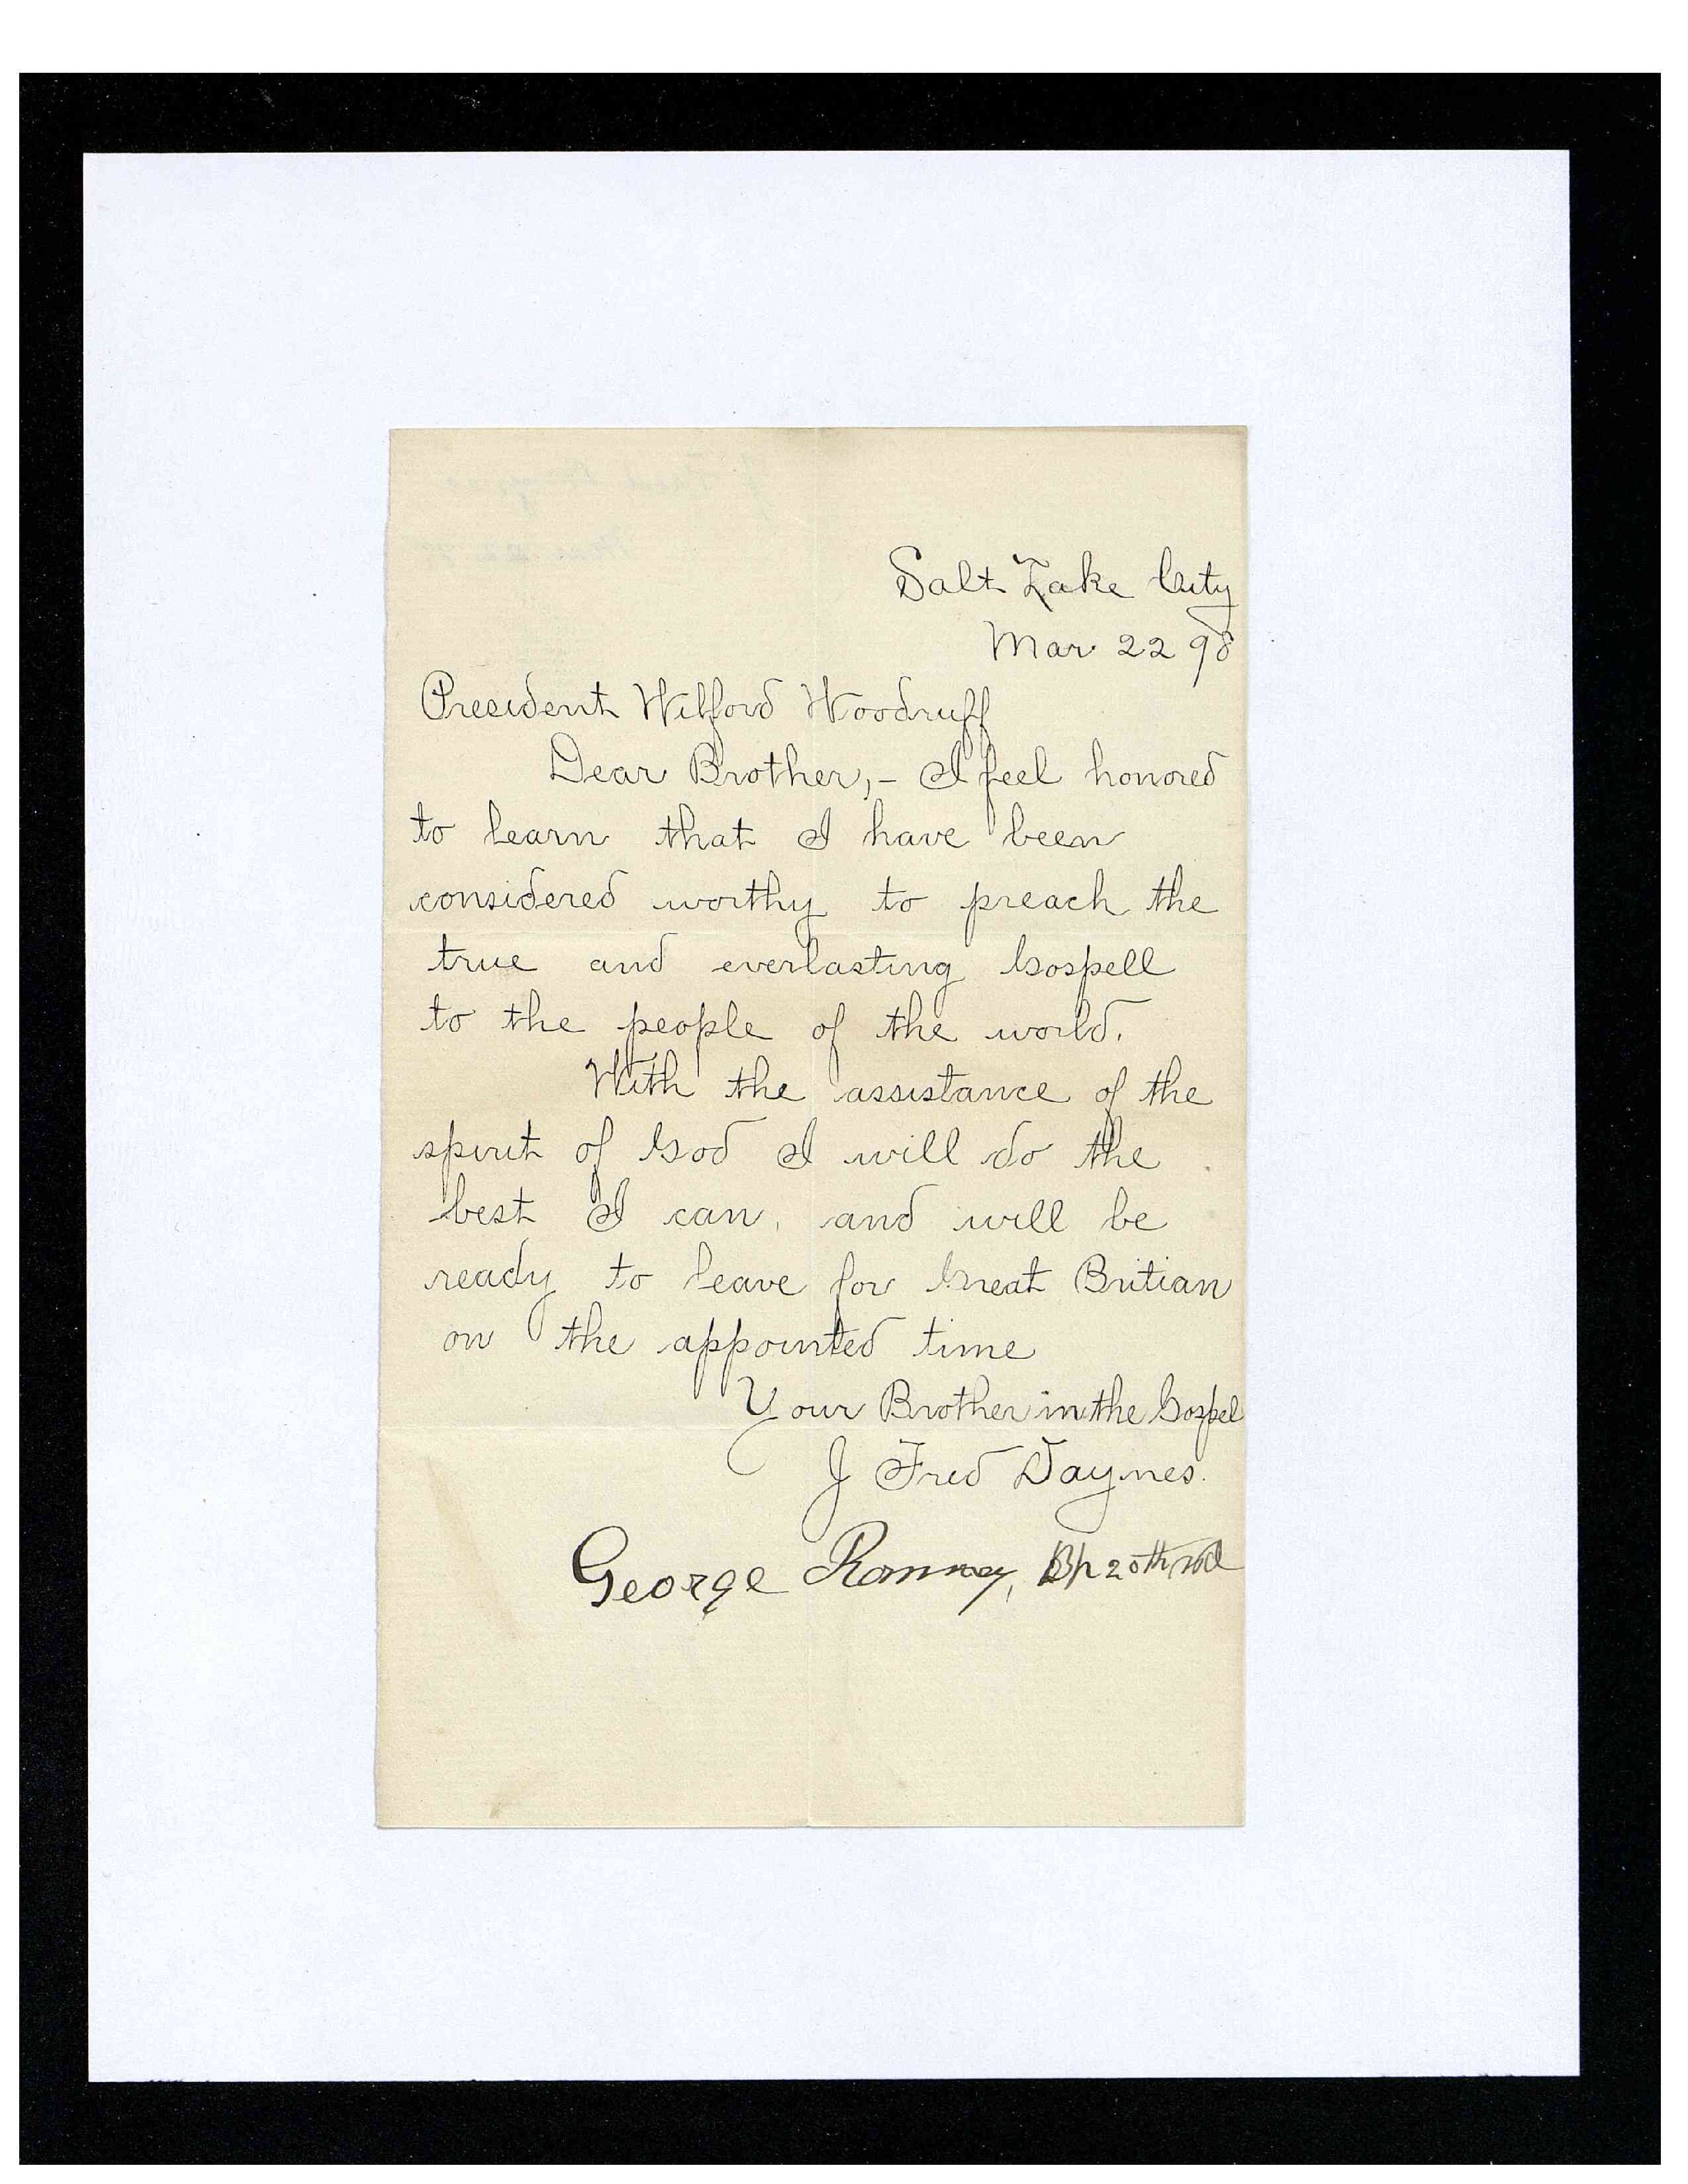 Salt Lake City
Mar 22 98
President Wilford Woodruff
Dear Brother,- I feel honored
to learn that I have been
considered worthy to preach the
true and everlasting Gospell
to the people of the world.
With the assistance of the
spirit of God I will do the
best I can, and will be
ready to leave for Great Britian
on the appointed time
Your Brother in the Gospel
J Fred Daynes.
George Romney, Bp 20th wd